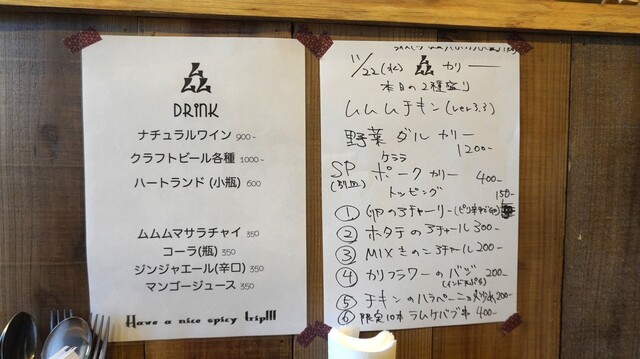 DRINK
ナチュラルワイン 900~
クラフトビール各種 1000~
ハートランド (小瓶) 600
ムムムマサラチャイ 350
コーラ(瓶) 350
ジンジャエール(辛口) 350
マンゴージュース 350
Have a nice spicy trip!!!
11/22(水) ムムム カリー
本日の2種盛り
ムムムチキン (ver3.3)
野菜 ダル カリー
1200-
ケララ
SP ポーク カリー 400-
(別皿)
トッピング
150-
① 卵のアチャーリー
② ホタテのアチャール 300-
③ MIXきのこアチャール 200-
④ カリフラワーのバジ 200-
(インド天ぷら)
⑤ チキンのハラペーニョ 200-
⑥ 限定10本 ラムケバブ串 400-